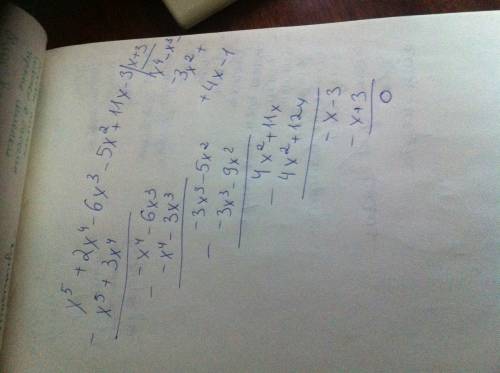 x⁵ + 2x⁴ - 6x³ - 5x² + 11x - 3 | x + 3
- x⁵ + 3x⁴
x⁴ - x³ -
- 3x² +
+ 4x - 1
- -x⁴ - 6x³
-x⁴ - 3x³
- -3x³ - 5x²
-3x³ - 9x²
- 4x² + 11x
4x² + 12x
- -x - 3
-x + 3
0